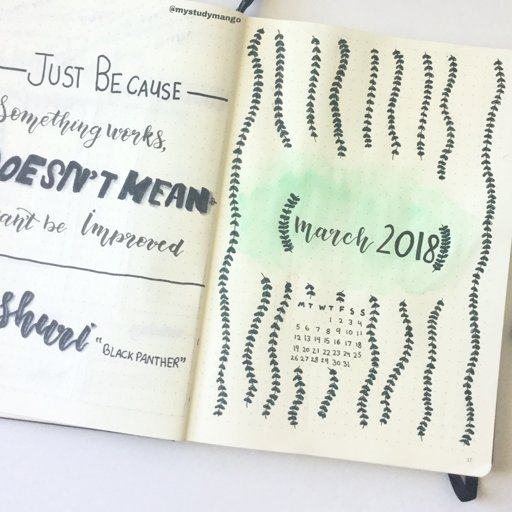 @mystudymango
JUST BECAUSE
Something works,
DOESN'T MEAN
ant be Improved
shuri
"BLACK PANTHER"
(march 2018)
M T W T F S S
1 2 3 4
5 6 7 8 9 10 11
12 13 14 15 16 17 18
19 20 21 22 23 24 25
26 27 28 29 30 31